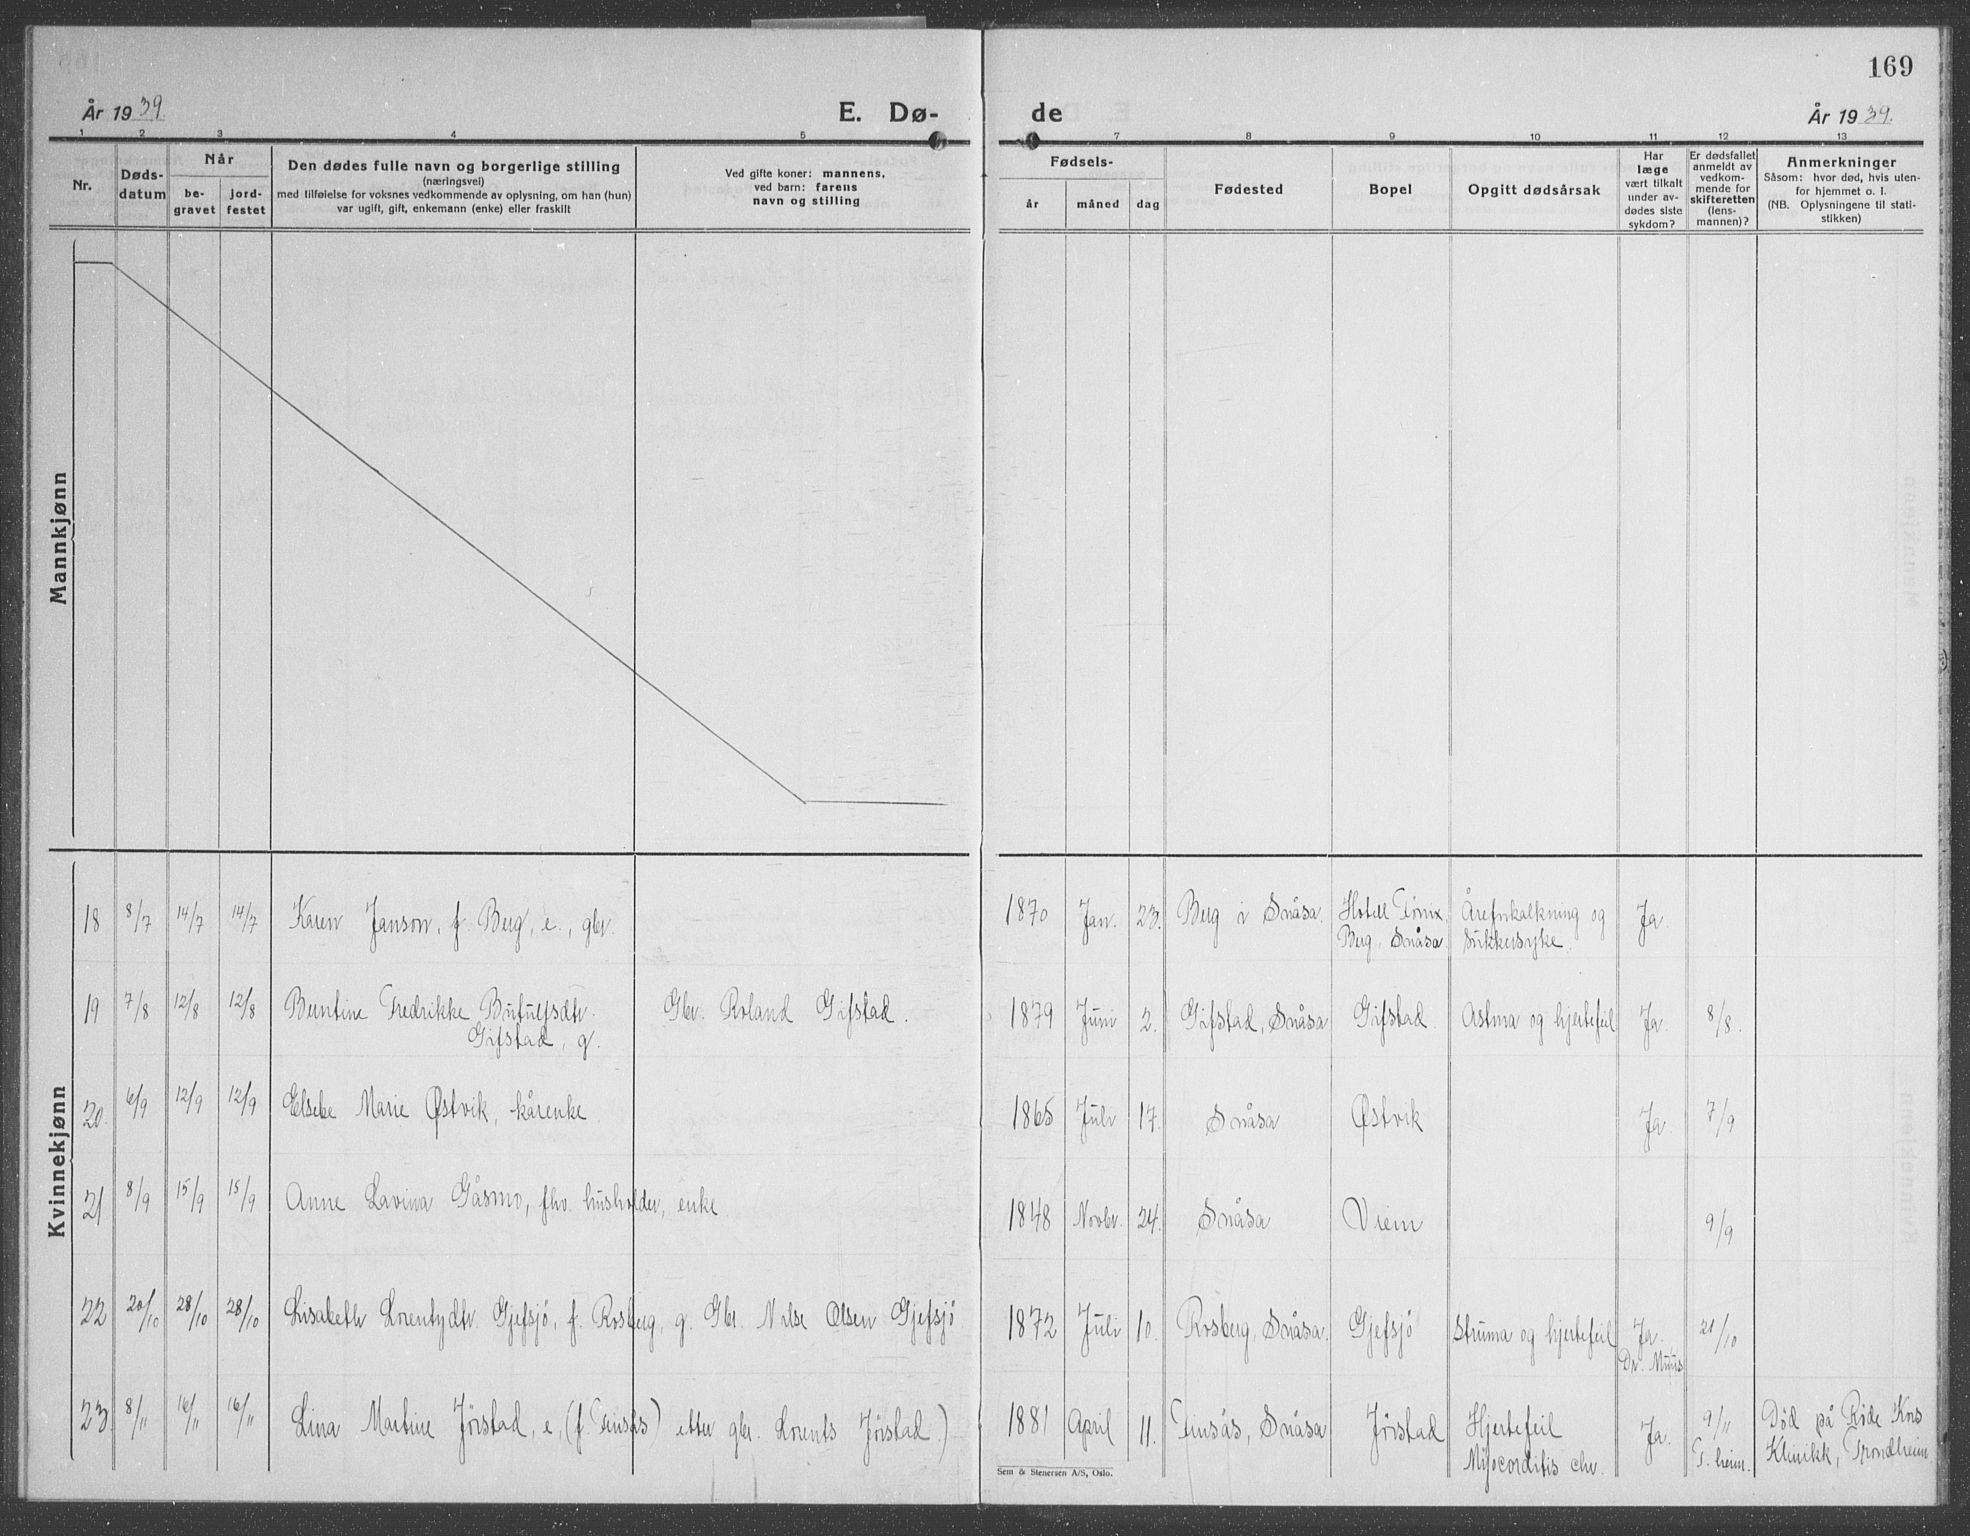 169
År 1939.
E. Dø-
de
År 1939.
1 2 3 4 5 7 8 9 10 11 12 13
Nr.
Døds-
datum
Når
be-
gravet
jord-
festet
Den dødes fulle navn og borgerlige stilling
(næringsvei)
med tilføielse for voksnes vedkommende av oplysning, om han (hun)
var ugift, gift, enkemann (enke) eller fraskilt
Ved gifte koner: mannens,
ved barn: farens
navn og stilling
Fødsels-
år måned dag
Fødested
Bopel
Opgitt dødsårsak
Har
læge
vært tilkalt
under av-
dødes siste
sykdom?
Er dødsfallet
anmeldt av
vedkom-
mende for
skifteretten
(lens-
mannen)?
Anmerkninger
Såsom: hvor død, hvis uten-
for hjemmet o. l.
(NB. Oplysningene til stati-
stikken)
Mannkjønn
Kvinnekjønn
18 8/7 14/7 14/7 Karen Janson, f. Berg, e., gbr. 1870 Jan. 23. Berg i Snåsa. Hotell Fønix, Årefrkalkning og Ja.
Berg, Snåsa. sukkersyke.
19 7/8 12/8 12/8 Berntine Fredrikke Brutulfsdtr. Gbr. Roland Gifstad. 1879 Juni 2. Gifstad, Snåsa Gifstad. Astma og hjertefeil Ja. 8/8.
Gifstad, g.
20. 6/9 12/9 12/9 Elsebe Marie Østvik, kårenke. 1865 Juli 17. Snåsa Østvik Ja. 7/9
21 8/9 15/9 15/9 Anne Lavina Gåsmo, fhv. husholder, enke 1848 Novbr. 24. Snåsa Viem 9/9
22 20/10 28/10 28/10 Lisabeth Lorentsdtr. Gjefsjø, f. Rosberg, g. Gbr. Nils Olsen Gjefsjø 1872 Juli 10. Rosberg, Snåsa. Gjefsjø Struma og hjertefeil Ja. 21/10
Dr. Muus
23. 8/11 16/11 16/11 Lina Martine Jørstad, e. (f. Finsås) etter gbr. Lorents Jørstad.) 1881 April 11. Finsås, Snåsa Jørstad Hjertefeil Ja. 9/11 Død på Røde Kors
Myocorditis chr. T.heim. Klinikk, Trondheim
Sem & Stenersen A/S, Oslo.